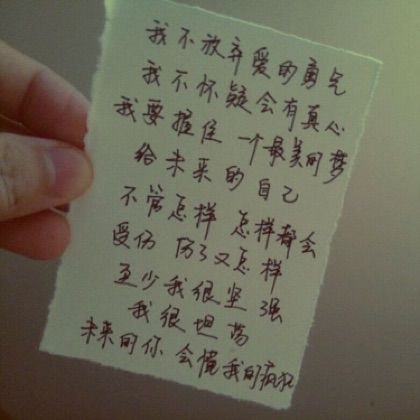 我不放弃爱的勇气
我不怀疑会有真心
我要握住一个最美的梦
给未来的自己
不管怎样 怎样都会
受伤 伤了又怎样
至少我很坚强
我很坦荡
未来的你会懂我的疯狂